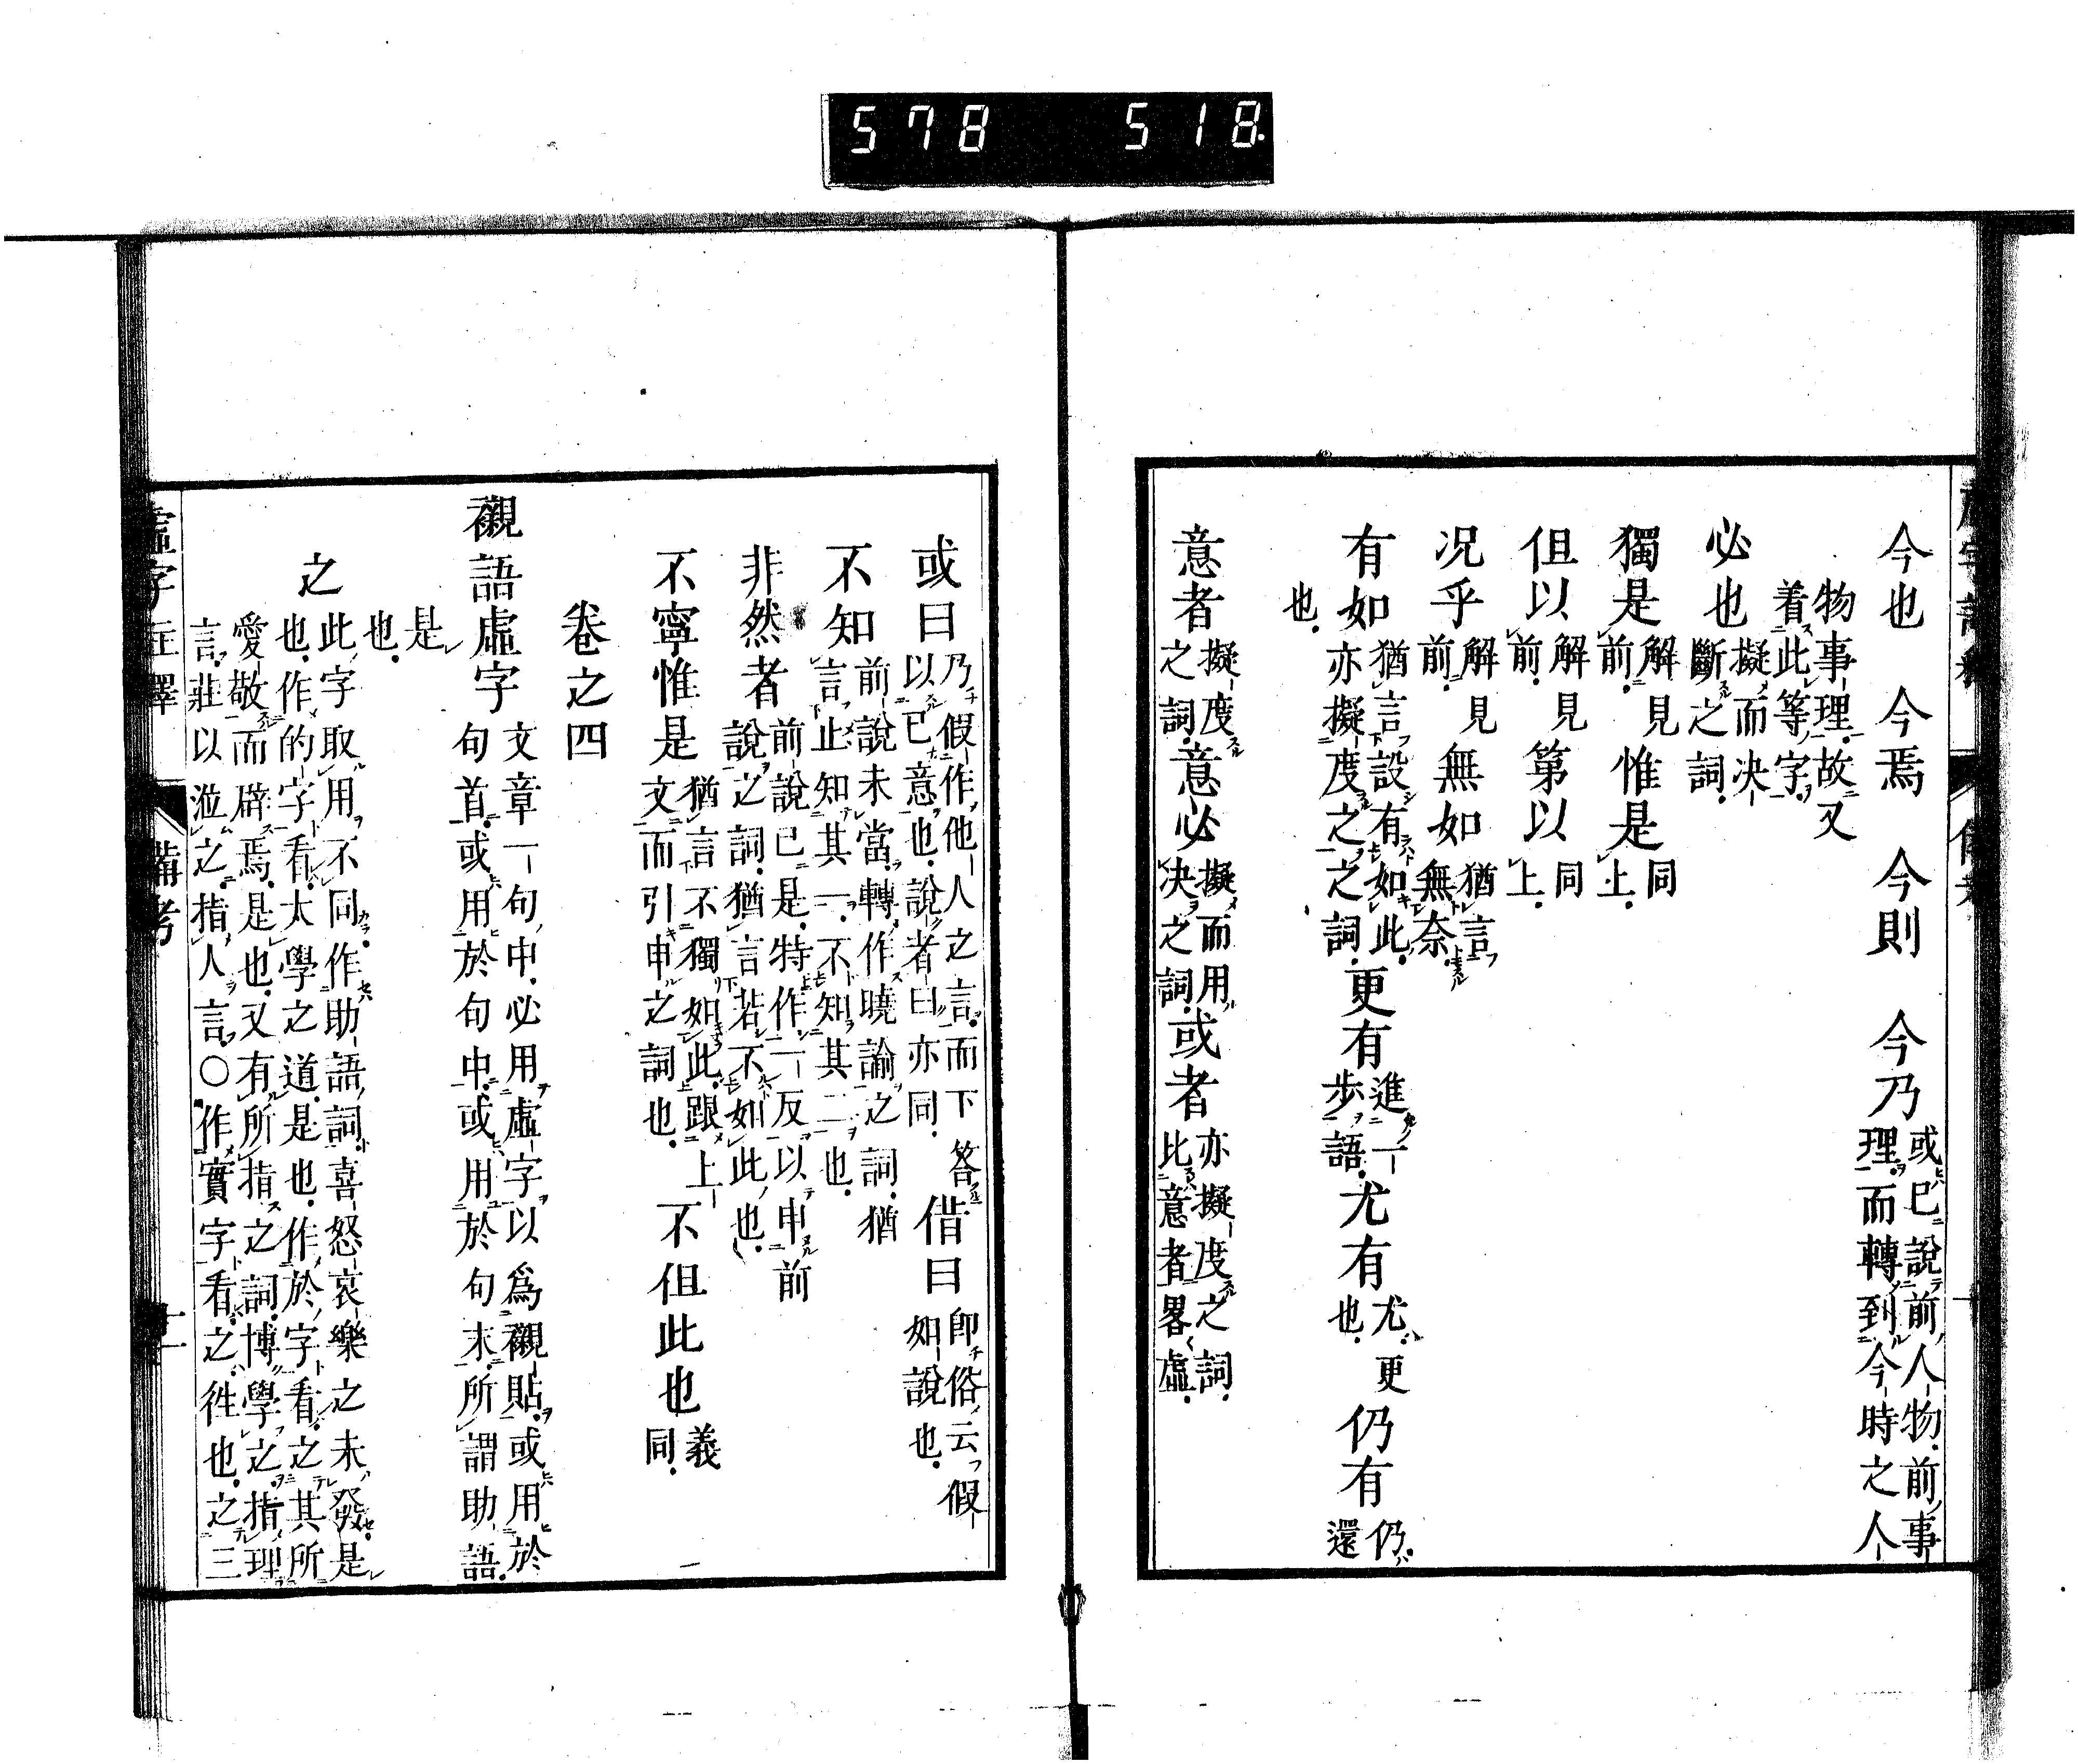 578 518
今也 今焉 今則 今乃 或已說前人物前事
理而轉到今時之人
物事理故又
着此等字
必也 擬而决
斷之詞
獨是 解見
前 惟是 同
上
但以 解見
前 第以 同
上
况乎 解見
前 無如 猶言
無奈
有如 猶言設有如此
亦擬度之之詞 更有 進一
步語 尤有 尤更
也 仍有 仍還
也
意者 擬度
之詞 意必 擬而用
决之詞 或者 亦擬度之詞
比意者畧虛
或曰 乃假作他人之言而下答
以已意也說者曰亦同 借曰 即俗云假
如說也
不知 前說未當轉作曉諭之詞猶
言止知其一不知其二也
非然者 前說已是特作一反以申前
說之詞猶言若不如此也
不寧惟是 猶言不獨如此跟上
文而引申之詞也 不但此也 義
同
卷之四
襯語虛字 文章一句中必用虛字以爲襯貼或用於
句首或用於句中或用於句末所謂助語
是
也
之 此字取用不同作助語詞喜怒哀樂之未發是
也作的字看大學之道是也作於字看之其所
愛敬而辟焉是也又有所指之詞博學之指理
言莊以涖之指人言○作實字看之徃也之三
虛字註釋 備考 十一